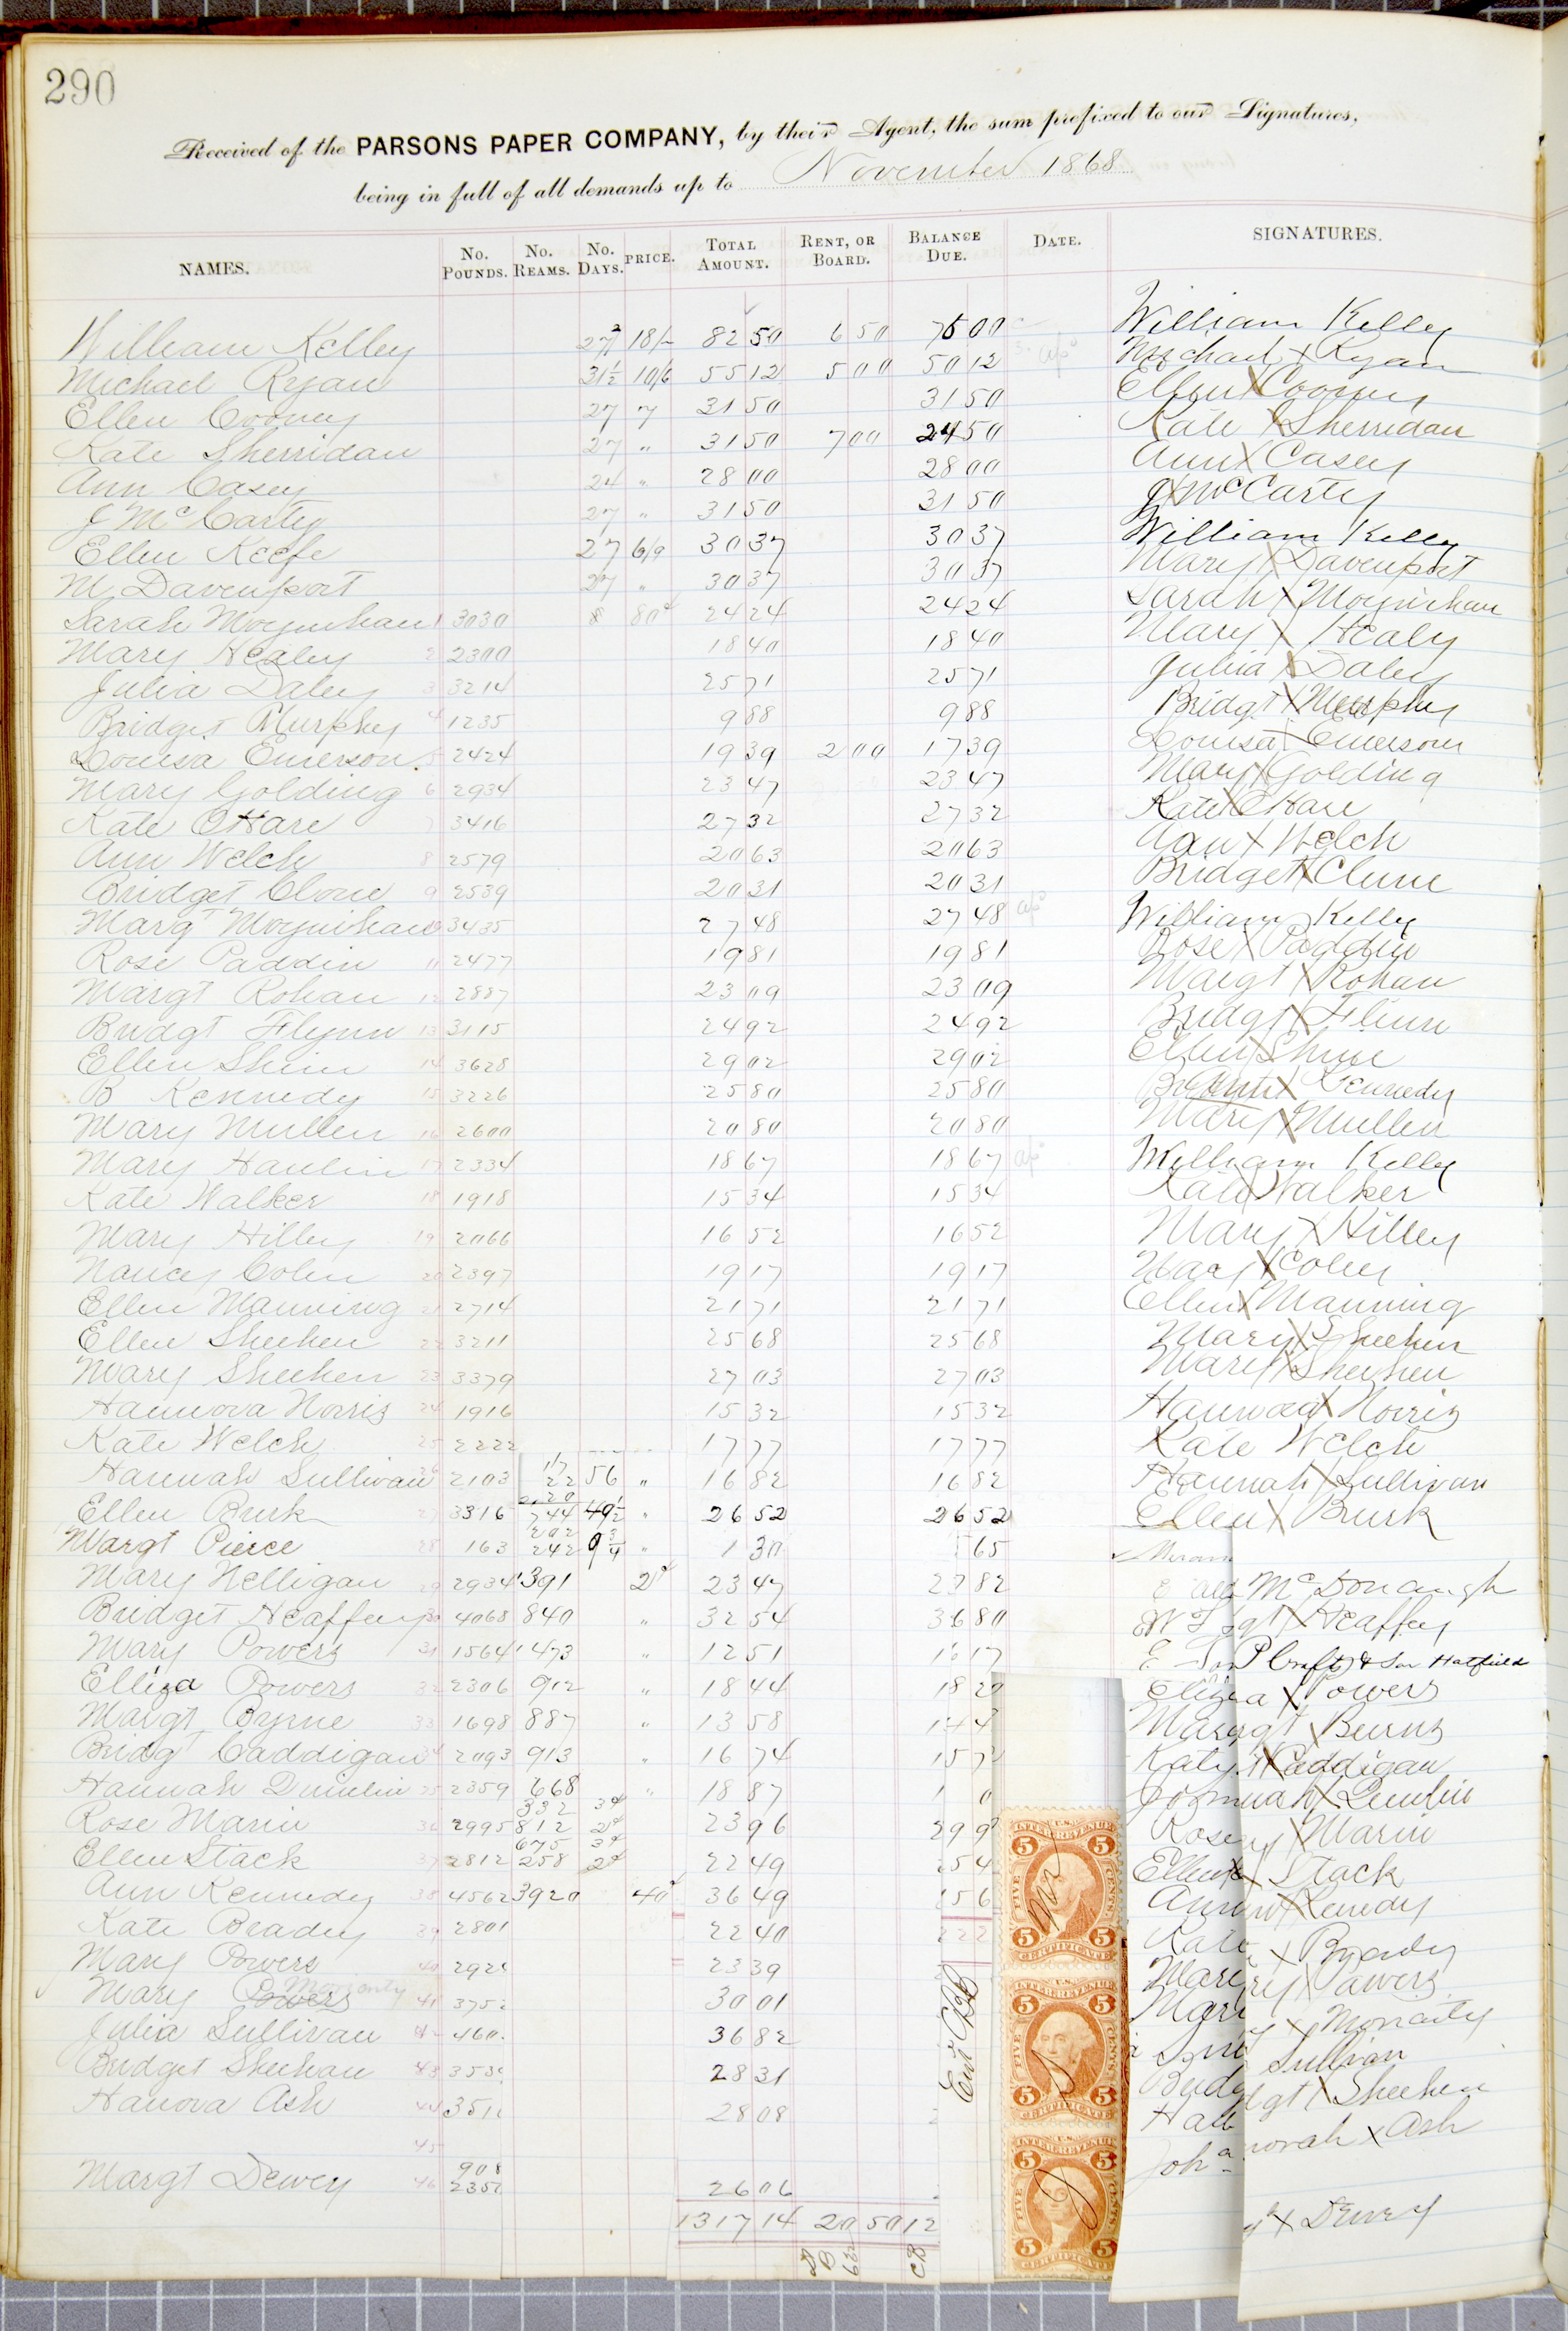 290
Received of the PARSONS PAPER COMPANY, by their Agent, the sum prefixed to our Signatures,
being in full of all demands up to November 1868
NAMES. No. Pounds. No. Reams. No. Days. PRICE. Total Amount. Rent, or Board. Balance Due. Date. SIGNATURES.
William Kelley 27 18/- 82 50 6 50 William Kelly
Michael Ryan 31 1/2 10/6 55 12 5 00 50 12 Michael X Ryan
Ellen Cooney 27 7 31 50 31 50 Ellen X Cooney
Kate Sherridan 27 " 31 50 7 00 24 50 Kate X Sherridan
Ann Casey 24 " 28 00 28 00 Ann X Casey
J McCarty 27 " 31 50 31 50 J X McCarty
Ellen Keefe 27 6/9 30 37 30 37 William Kelly
M Davenport 27 " 30 37 30 37 Mary X Davenport
Sarah Moynihan 1 3030 8 80 24 24 24 24 Sarah X Moynihan
Mary Healey 2 2300 18 40 18 40 Mary X Healy
Julia Daley 3 3214 25 71 25 71 Julia X Daley
Bridget Murphy 4 1235 9 88 9 88 Bridgt X Murphy
Louisa Emerson 5 2424 19 39 2 00 17 39 Louisa X Emerson
Mary Golding 6 2934 23 47 23 47 Mary X Golding
Kate OHare 7 3416 27 32 27 32 Kate X OHare
Ann Welch 8 2579 20 63 20 63 Ann X Welch
Bridget Clune 9 2539 20 31 20 31 Bridget X Clune
Margt Moynihan 3435 27 48 27 48 William Kelly
Rose Paddin 11 2477 19 81 19 81 Rose X Paddin
Margt Rohan 12 2887 23 09 23 09 Margt X Rohan
Bridgt Flynn 13 3115 24 92 24 92 Bridgt X Flinn
Ellen Shine 14 3628 29 02 29 02 Ellen X Shine
B Kennedy 15 3226 25 80 25 80 Kennedy
Mary Mullen 16 2600 20 80 20 80 Mary X Mullen
Mary Hanlin 17 2334 18 67 18 67 William Kelly
Kate Walker 18 1918 15 34 15 34 Kate X Walker
Mary Hilley 19 2066 16 52 16 52 Mary X Hilley
Nancy Colen 20 2397 19 17 19 17 X
Ellen Manning 21 2714 21 71 21 71 Ellen X Manning
Ellen Sheehen 22 3211 25 68 25 68 Mary X Sheehen
Mary Sheehen 23 3379 27 03 27 03 Mary X Sheehen
Hannora Norris 24 1916 15 32 15 32 Hannora X Norris
Kate Welch 25 2222 17 77 17 77 Kate Welch
Hannah Sullivan 26 2103 22 56 " 16 82 16 82 Hannah X Sullivan
Ellen Burk 27 3316 744 49 1/2 " 26 52 26 52 Ellen X Burk
Margt Pierce 28 163 242 9 3/4 " 1 30 65
Mary Nelligan 29 2934 391 2 23 47 McDonaugh
Bridget Heaffey 30 4068 840 " 32 54 36 80 gt X Heaffey
Mary Powers 31 1564 473 " 12 51 & Son Hatfield
Elliza Powers 32 2306 902 " 18 44 18 2 Eliza X Powers
Margt Byrne 33 1698 887 " 13 58 gt X Burns
Bridgt Caddigan 34 2093 913 " 16 74 15 7 Katy X Caddigan
Hannah Quinlin 35 2359 668 " 18 87 nah X Quinlin
Rose Marin 36 2995 332 3 812 2 23 96 29 9 Rose X Marin
Ellen Stack 37 2812 675 3 258 2 22 49 54 Ellen X Stack
Ann Kennedy 38 4562 3920 40 36 49 56 Ann X Kennedy
Kate Bradey 39 2801 22 40 Kate X Bradey
Mary Powers 40 292 23 39 X Powers
Mary Powers Moriarty 41 375 30 01 X Moriarty
Julia Sullivan 460 36 82 Sullivan
Bridget Sheehan 43 353 28 31 dgt X Sheehen
Hanora Ash 44 351 28 08 norah X Ash
45
Margt Dewey 46 908 235 26 06 X Dewey
1317 14 20 50 12
U.S. INTER. REVENUE
FIVE CENTS
5 CERTIFICATE 5
U.S. INTER. REVENUE
FIVE CENTS
5 CERTIFICATE 5
U.S. INTER. REVENUE
FIVE CENTS
5 CERTIFICATE 5